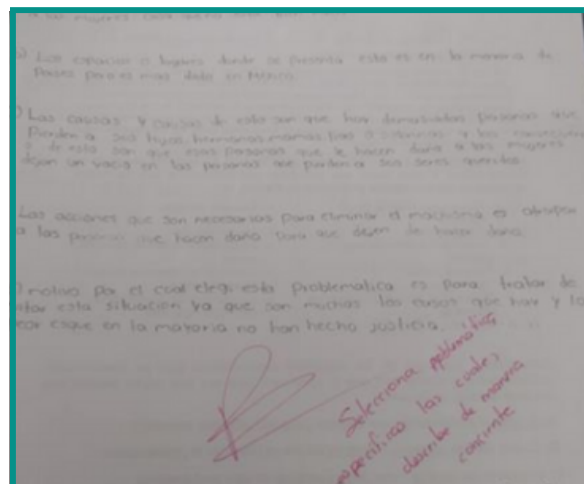 a las mujeres
b) Los espacios o lugares donde se presenta esto es en la mayoria de
Paises pero el mas dato en México
) Las causas y de esto son que hay demasiadas personas que
Pierden a sus hijas hermanas mamas tias o sobrinas y las
de esto son que esas personas que le hacen daño a las mujeres
dejan un vacio en las personas que pierden a sus seres queridos.
Las acciones que son necesarias para eliminar el machismo es atrapar
a las personas que hacen daño para que dejen de hacer daño.
motivo por el cual elegi esta Problematica es para tratar de
esta situacion ya que son muchas los casos que hay y lo
eor esque en la mayoria no han hecho justicia.
Selecciona problematicas
especificas las cuales
describe de manera